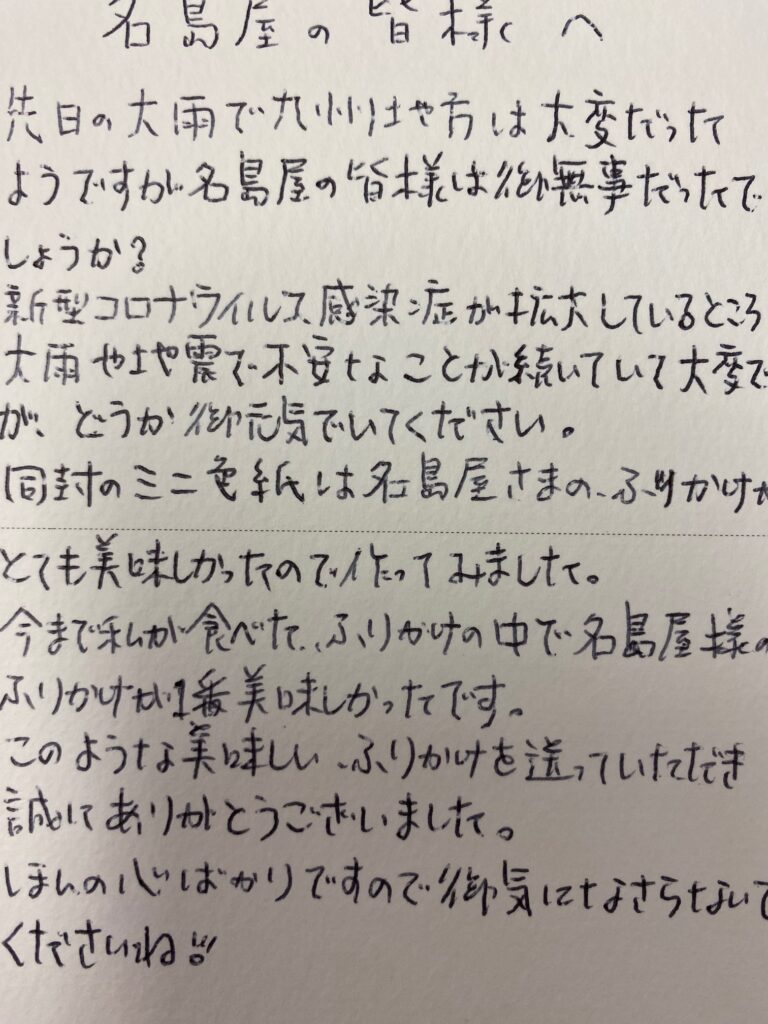 名島屋の皆様へ
先日の大雨で九州地方は大変だった
ようですが名島屋の皆様は御無事だったで
しょうか?
新型コロナウイルス感染症が拡大しているところ
大雨や地震で不安なことが続いていて大変で
が、どうか御元気でいてください。
同封のミニ色紙は名島屋さまの、ふりかけが
とても美味しかったので作ってみました。
今まで私が食べた、ふりかけの中で名島屋様の
ふりかけが1番美味しかったです。
このような美味しい、ふりかけを送っていただき
誠にありがとうございました。
ほんの心ばかりですので御気になさらないで
くださいね!!